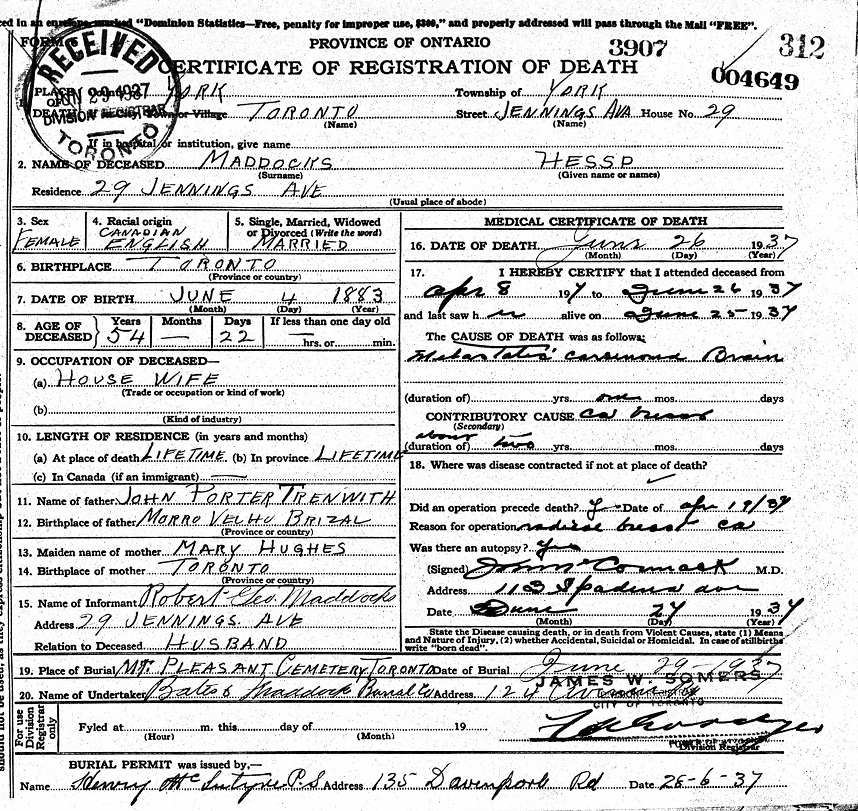 ced in an envelope, marked "Dominion Statistics—Free, penalty for improper use, $300," and properly addressed will pass through the Mail "FREE".
FORM
PROVINCE OF ONTARIO
3907
312
CERTIFICATE OF REGISTRATION OF DEATH
004649
RECEIVED
JUN 29 1937
DIVISION REGISTRAR
TORONTO
1. PLACE OF DEATH YORK Township of YORK
TORONTO Street JENNINGS AVA House No. 29
(Name) (Name)
If in hospital or institution, give name
2. NAME OF DECEASED MADDOCKS HESSD
(Surname) (Given name or names)
Residence 29 JENNINGS AVE
(Usual place of abode)
3. Sex FEMALE
4. Racial origin CANADIAN ENGLISH
5. Single, Married, Widowed or Divorced (Write the word) MARRIED
6. BIRTHPLACE TORONTO
(Province or country)
7. DATE OF BIRTH JUNE 4 1883
(Month) (Day) (Year)
8. AGE OF DECEASED Years 54 Months — Days 22 If less than one day old — hrs. or min.
9. OCCUPATION OF DECEASED—
(a) HOUSE WIFE
(Trade or occupation or kind of work)
(b)
(Kind of industry)
10. LENGTH OF RESIDENCE (in years and months)
(a) At place of death LIFETIME (b) In province LIFETIME
(c) In Canada (if an immigrant) —
11. Name of father JOHN PORTER TRENWITH
12. Birthplace of father MORRO VELHO BRIZAL
(Province or country)
13. Maiden name of mother MARY HUGHES
14. Birthplace of mother TORONTO
(Province or country)
15. Name of Informant Robert Geo. Maddocks
Address 29 JENNINGS AVE
Relation to Deceased HUSBAND
MEDICAL CERTIFICATE OF DEATH
16. DATE OF DEATH June 26 1937
(Month) (Day) (Year)
17. I HEREBY CERTIFY that I attended deceased from
apr 8 197 to June 26 1937
and last saw her alive on June 25 1937
The CAUSE OF DEATH was as follows:
carcinoma Brain
(duration of) yrs. one mos. days
CONTRIBUTORY CAUSE ca breast
(Secondary)
about
(duration of) two yrs. mos. days
18. Where was disease contracted if not at place of death?
Did an operation precede death? Date of apr 19/37
Reason for operation breast ca
Was there an autopsy? yes
(Signed) John McCormack M.D.
Address 113 Spadina ave
Date June 27 1937
(Month) (Day) (Year)
State the Disease causing death, or in death from Violent Causes, state (1) Means
and Nature of Injury, (2) whether Accidental, Suicidal or Homicidal. In case of stillbirths
write "born dead".
19. Place of Burial MT. PLEASANT CEMETERY TORONTO Date of Burial June 29-1937
JAMES W. SOMERS
20. Name of Undertaker Bates & Maddock Burial Co Address 124
CITY OF TORONTO
For use Division Registrar only
Fyled at m. this day of 19
(Hour) (Month)
Division Registrar
BURIAL PERMIT was issued by.—
Name Henry McIntyre P.S Address 135 Davenport Rd Date 28-6-37